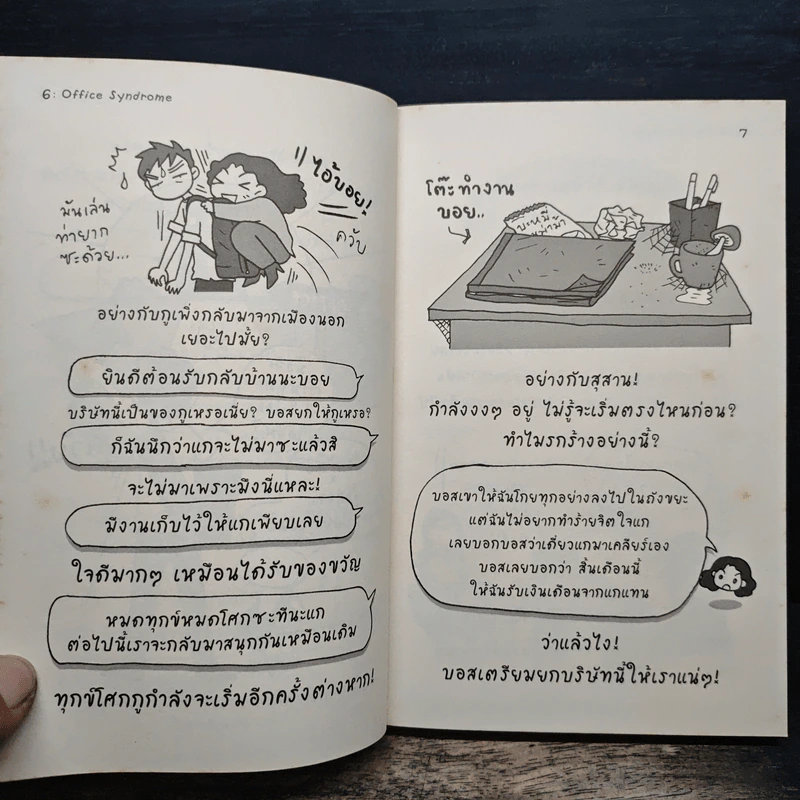 6: Office Syndrome
ไอ้บอย!
ควับ
มันเล่น
ท่ายาก
ซะด้วย...
อย่างกับกูเพิ่งกลับมาจากเมืองนอก
เยอะไปมั้ย?
ยินดีต้อนรับกลับบ้านนะบอย
บริษัทนี้เป็นของกูเหรอเนี่ย? บอสยกให้กูเหรอ?
ก็ฉันนึกว่าแกจะไม่มาซะแล้วสิ
จะไม่มาเพราะมึงนี่แหละ!
มีงานเก็บไว้ให้แกเพียบเลย
ใจดีมากๆ เหมือนได้รับของขวัญ
หมดทุกข์หมดโศกซะทีนะแก
ต่อไปนี้เราจะกลับมาสนุกกันเหมือนเดิม
ทุกข์โศกกูกำลังจะเริ่มอีกครั้งต่างหาก!
7
โต๊ะทำงาน
บอย..
บะหมี่
อย่างกับสุสาน!
กำลังงงๆ อยู่ ไม่รู้จะเริ่มตรงไหนก่อน?
ทำไมรกร้างอย่างนี้?
บอสเขาให้ฉันโกยทุกอย่างลงไปในถังขยะ
แต่ฉันไม่อยากทำร้ายจิตใจแก
เลยบอกบอสว่าเดี๋ยวแกมาเคลียร์เอง
บอสเลยบอกว่า สิ้นเดือนนี้
ให้ฉันรับเงินเดือนจากแกแทน
ว่าแล้วไง!
บอสเตรียมยกบริษัทนี้ให้เราแน่ๆ!